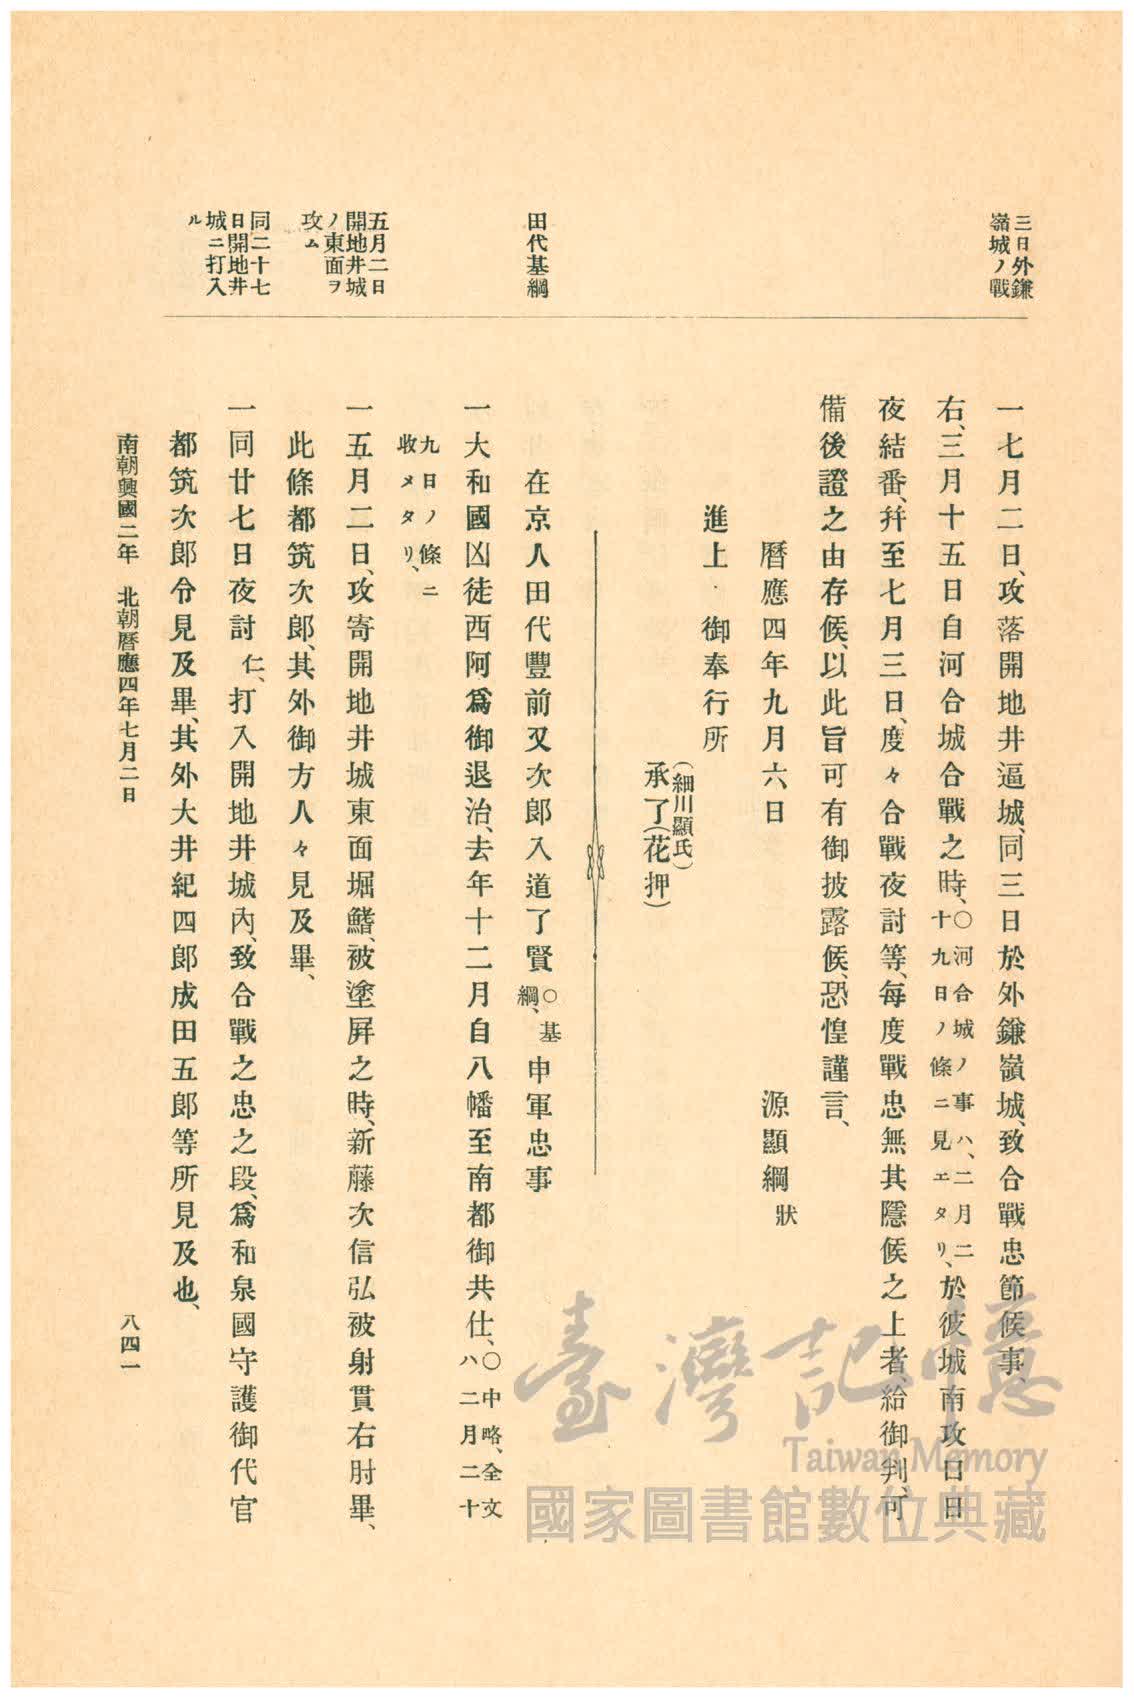 三日外鎌
嶺城ノ戰
田代基綱
五月二日
開地井城
ノ東面ヲ
攻ム
同二十七
日開地井
城ニ打入
ル
一七月二日、攻落開地井逼城、同三日於外鎌嶺城、致合戰忠節候事、
右、三月十五日自河合城合戰之時、〇河合城ノ事ハ、二月二十九日ノ條ニ見エタリ、於彼城南攻口日
夜結番、幷至七月三日、度々合戰夜討等、每度戰忠無其隱候之上者、給御判、可
備後證之由存候、以此旨可有御披露候、恐惶謹言、
曆應四年九月六日　源顯綱狀
進上　御奉行所
（細川顯氏）
承了（花押）
在京人田代豐前又次郎入道了賢〇基綱、申軍忠事
一大和國凶徒西阿爲御退治、去年十二月自八幡至南都御共仕、〇中略、全文ハ二月二十
九日ノ條ニ
收メタリ、
一五月二日、攻寄開地井城東面堀鰭、被塗屛之時、新藤次信弘被射貫右肘畢、
此條都筑次郎、其外御方人々見及畢、
一同廿七日夜討仁、打入開地井城內、致合戰之忠之段、爲和泉國守護御代官
都筑次郎令見及畢、其外大井紀四郎成田五郎等所見及也、
南朝興國二年　北朝曆應四年七月二日
八四一
臺灣記憶
Taiwan Memory
國家圖書館數位典藏